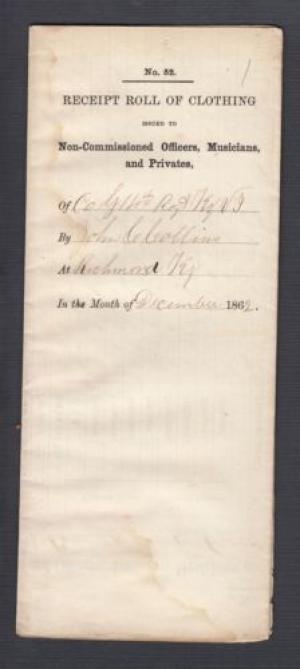 No. 52.
RECEIPT ROLL OF CLOTHING
ISSUED TO
Non-Commissioned Officers, Musicians,
and Privates,
Of Co G Reg Ky V I
By John C Collins
At Richmond Ky
In the Month of December 1862.